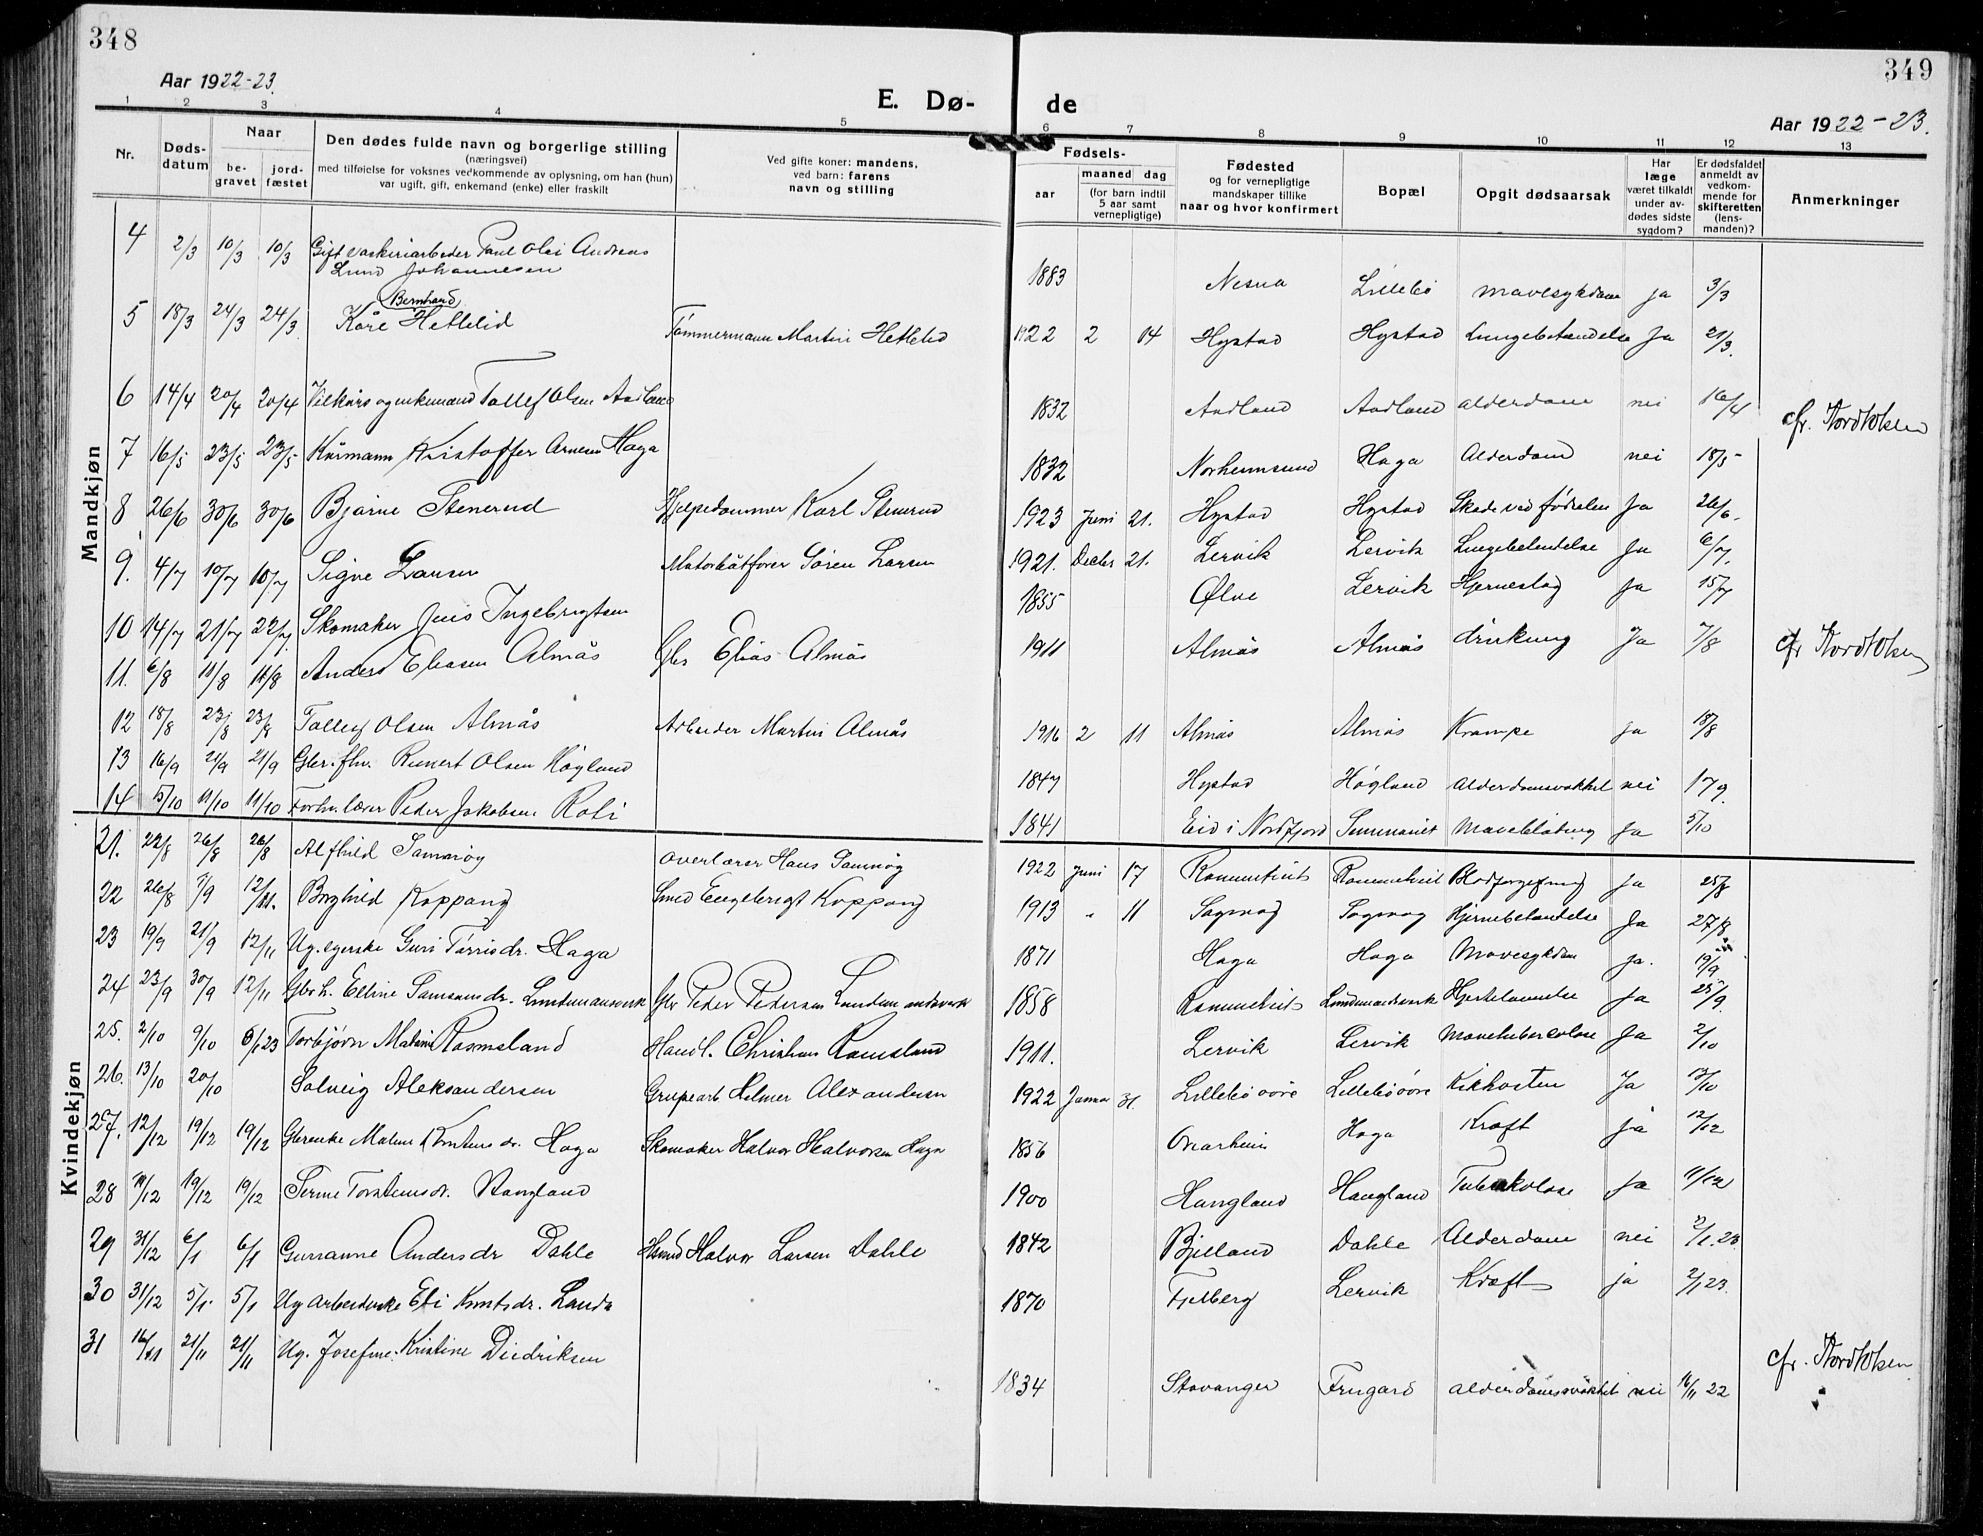 348
349
Aar 1922-23.
E. Dø-
de
Aar 1922-23.
1 2 3 4 5 6 7 8 9 10 11 12 13
Nr.
Døds-
datum
Naar
be-
gravet
jord-
fæstet
Den dødes fulde navn og borgerlige stilling
(næringsvei)
med tilføielse for voksnes vedkommende av oplysning, om han (hun)
var ugift, gift, enkemand (enke) eller fraskilt
Ved gifte koner: mandens,
ved barn: farens
navn og stilling
Fødsels-
aar
maaned dag
(for barn indtil
5 aar samt
vernepligtige)
Fødested
og for vernepligtige
mandskaper tillike
naar og hvor konfirmert
Bopæl
Opgit dødsaarsak
Har
læge
været tilkaldt
under av-
dødes sidste
sygdom?
Er dødsfaldet
anmeldt av
vedkom-
mende for
skifteretten
(lens-
manden)?
Anmerkninger
Mandkjøn
4 2/3 10/3 10/3 Gift vaskeriarbeder Paul Olai Andreas
Lund Johannesen 1883 Nesna Lillebø mavesykdom ja 3/3
Bernhard
5 18/3 24/3 24/3 Kåre Hetlelid Tømmermann Martin Hetlelid 1922 2 14 Hystad Hystad Lungebetændelse Ja 21/3.
6 14/4 20/4 20/4 Vilkårs og enkemand Tollef Olsen Aadland 1832 Aadland Aadland alderdom nei 16/4
7 16/5 23/5 23/5 Kårmann Kristoffer Arnesen Haga 1832 Norheimsund Haga Alderdom nei 18/5
8 26/6 30/6 30/6 Bjarne Stenerud Hjelpedommer Karl Stenerud 1923 Juni 21. Hystad Hystad Skade ved fødselen Ja 26/6.
9. 4/7 10/7 10/7 Signe Larsen Motorbåtfører Søren Larsen 1921. Decbr 21. Lervik Lervik Lungebetendelse Ja 6/7.
10 14/7 21/7 22/7. Skomaker Jens Ingebrigtsen 1855 Ølve Lervik Hjerneslag Ja 15/7
11. 6/8 11/8 11/8 Anders Eliasen Almås Gbr Elias Almås 1911 Almås Almås drukning Ja 7/8
12 18/8 23/8 23/8 Tollef Olsen Almås Arbeider Martin Almås 1916 2 11 Almås Almås Krampe ja 18/8
13 16/9 21/9 21/9 Gbr. fhv. Reinert Olsen Høgland 1847 Hystad Høgland Alderdomsvakhet nei 17/9.
14 5/10 11/10 11/10 Forhv. lærer Peder Jakobsen Roti 1841 Eid i Nordfjord Seminariet Maveblødning Ja 5/10
Kvindekjøn
21. 22/8 26/8 26/8 Alfhild Samnøy Overlærer Hans Samnøy 1922 Juni 17 Rommetveit Rommetveit Blodforgiftning Ja 25/8
22 26/8 1/9 12/11. Borghild Koppang Smed Engebrigt Koppang 1913 " 11 Sagvåg Sagvag Hjernebetændelse Ja 27/8
23 19/9 21/9 12/11 Ug. syerske Guri Tørrisdr. Haga 1871 Haga Haga Mavesykdom Ja. 19/9
24 23/9 30/9 12/11 Gbrh. Elline Samsonsdr. Lundemansverk Gbr Peder Pedersen Lundemansverk 1858 Rommetveit Lundemandsverk Hjertelammelse Ja 25/9.
25. 2/10 9/10 6/1 23 Torbjørn Malene Ramsland Handl. Christian Ramsland 1911. Lervik Lervik Mavetuberculose Ja 2/10
26. 13/10 20/10 Solveig Aleksandersen Grupearb Helmer Alexandersen 1922 Januar 31. Lillebø øvre Lillebø øvre Kikhosten Ja 13/10
27. 12/12 19/12 19/12 Gbrenke Malene Knutsdr. Haga Skomaker Halvor Halvorsen Haga 1856 Onarheim Haga Kræft ja 12/12
28 11/12 19/12 19/12 Serine Torsteinsdr. Haugland 1900 Haugland Haugland Tuberkolose Ja 11/12
29 31/12 6/1 6/1 Gurianne Andersdr Dahle Husmd Halvor Larsen Dahle 1842 Bjelland Dahle Alderdom nei 2/1.23
30 31/12 5/1 5/1 Ug arbeiderske Eli Knutsdr. Landa 1870 Fjelberg Lervik Kræft ja 2/1 23.
31 16/11 21/11 21/11 Ug. Josefine Kristine Diedriksen 1834 Stavanger Frugard alderdomssvakhet nei 16/11 22